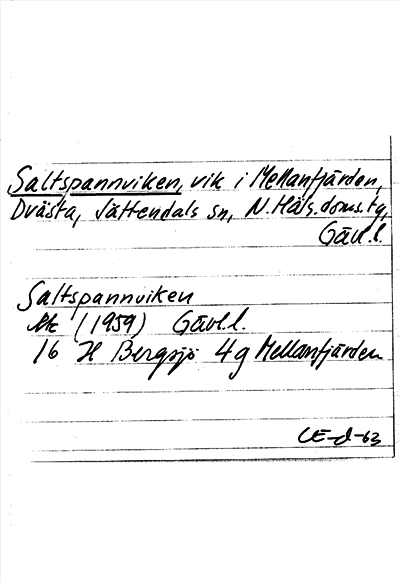 Saltspannviken, vik i Mellanfjärden,
Dvästa, Jättendals sn, N.Häls.doms.tg,
Gävl.l.
Saltspannviken
Ek (1959) Gävl.l.
16 H Bergsjö 4g Mellanfjärden
CE-d-63